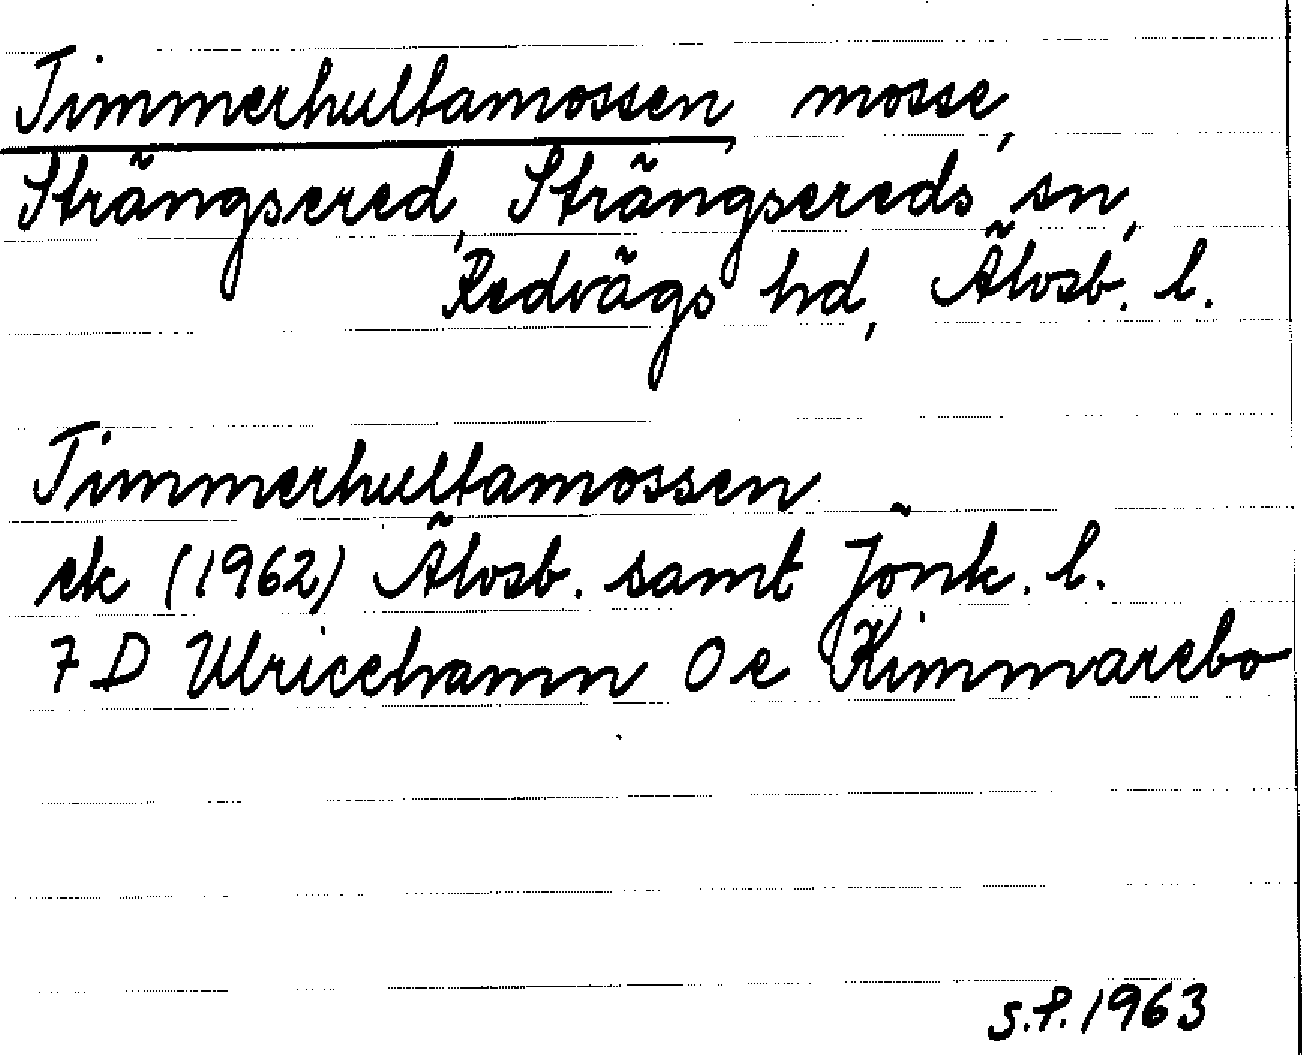 Timmerhultamossen, mosse,
Strängsered, Strängsereds sn,
Redvägs hd, Älvsb. l.
Timmerhultamossen
ek (1962) Älvsb. samt Jönk. l.
7 D Ulricehamn 0 e Kimmarebo
S.P. 1963